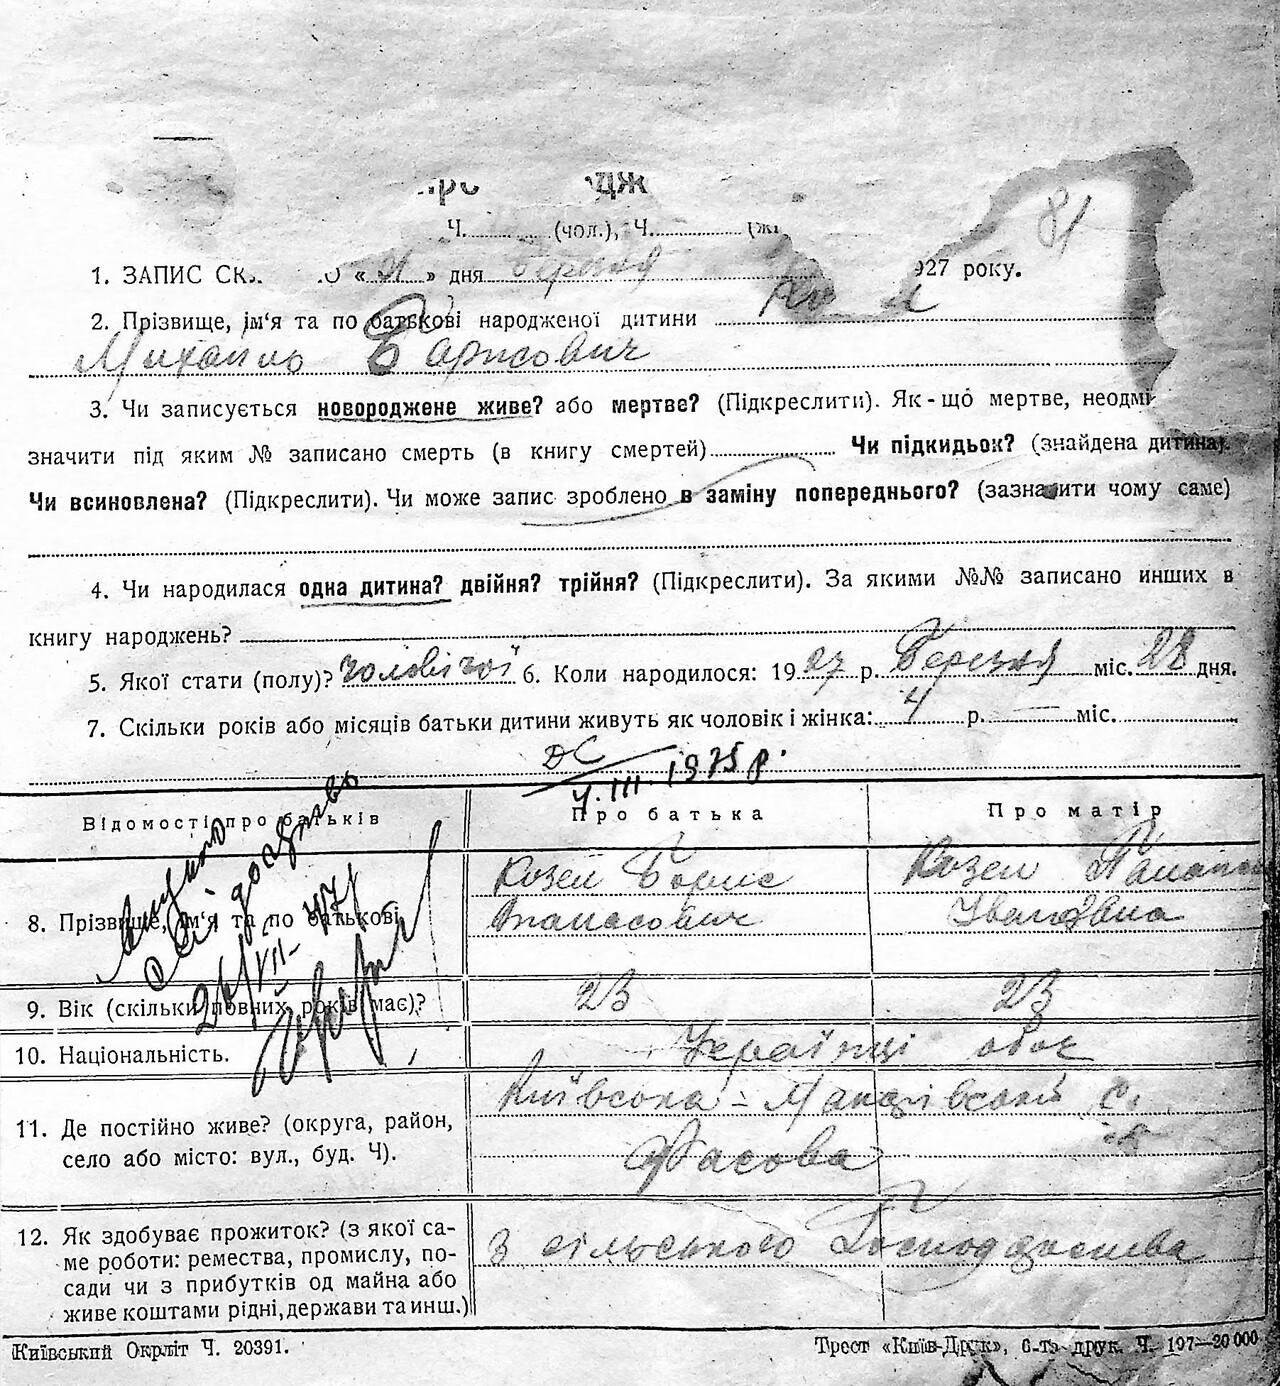 81
Ч. (чол.), Ч.
1. ЗАПИС «31» дня Березня 1927 року.
2. Прізвище, ім'я та по батькові народженої дитини
Михайло Борисович
3. Чи записується новороджене живе? або мертве? (Підкреслити). Як-що мертве, неодмі
значити під яким № записано смерть (в книгу смертей) Чи підкидьок? (знайдена дитина).
Чи всиновлена? (Підкреслити). Чи може запис зроблено в заміну попереднього? (зазначити чому саме)
4. Чи народилася одна дитина? двійня? трійня? (Підкреслити). За якими №№ записано инших в
книгу народжень?
5. Якої стати (полу)? чоловічої 6. Коли народилося: 1927 р. Березня міс. 28 дня.
7. Скільки років або місяців батьки дитини живуть як чоловік і жінка: 4 р. — міс.
4.III.1975 р.
Відомості про батьків Про батька Про матір
8. Прізвище, ім'я та по батькові Козел Борис Панасович Козел Іванівна
26/VII-47
9. Вік (скільки повних років має)? 23 23
10. Національність. Українці обоє
11. Де постійно живе? (округа, район, село або місто: вул., буд. Ч). Київська - Макарівський с.
Фасова
12. Як здобуває прожиток? (з якої са-
ме роботи: ремества, промислу, по-
сади чи з прибутків од майна або
живе коштами рідні, держави та инш.) З сільського Господарства
Київський Окрліт Ч. 20391.
Трест «Київ-Друк», 6-та друк. Ч. 197—20000